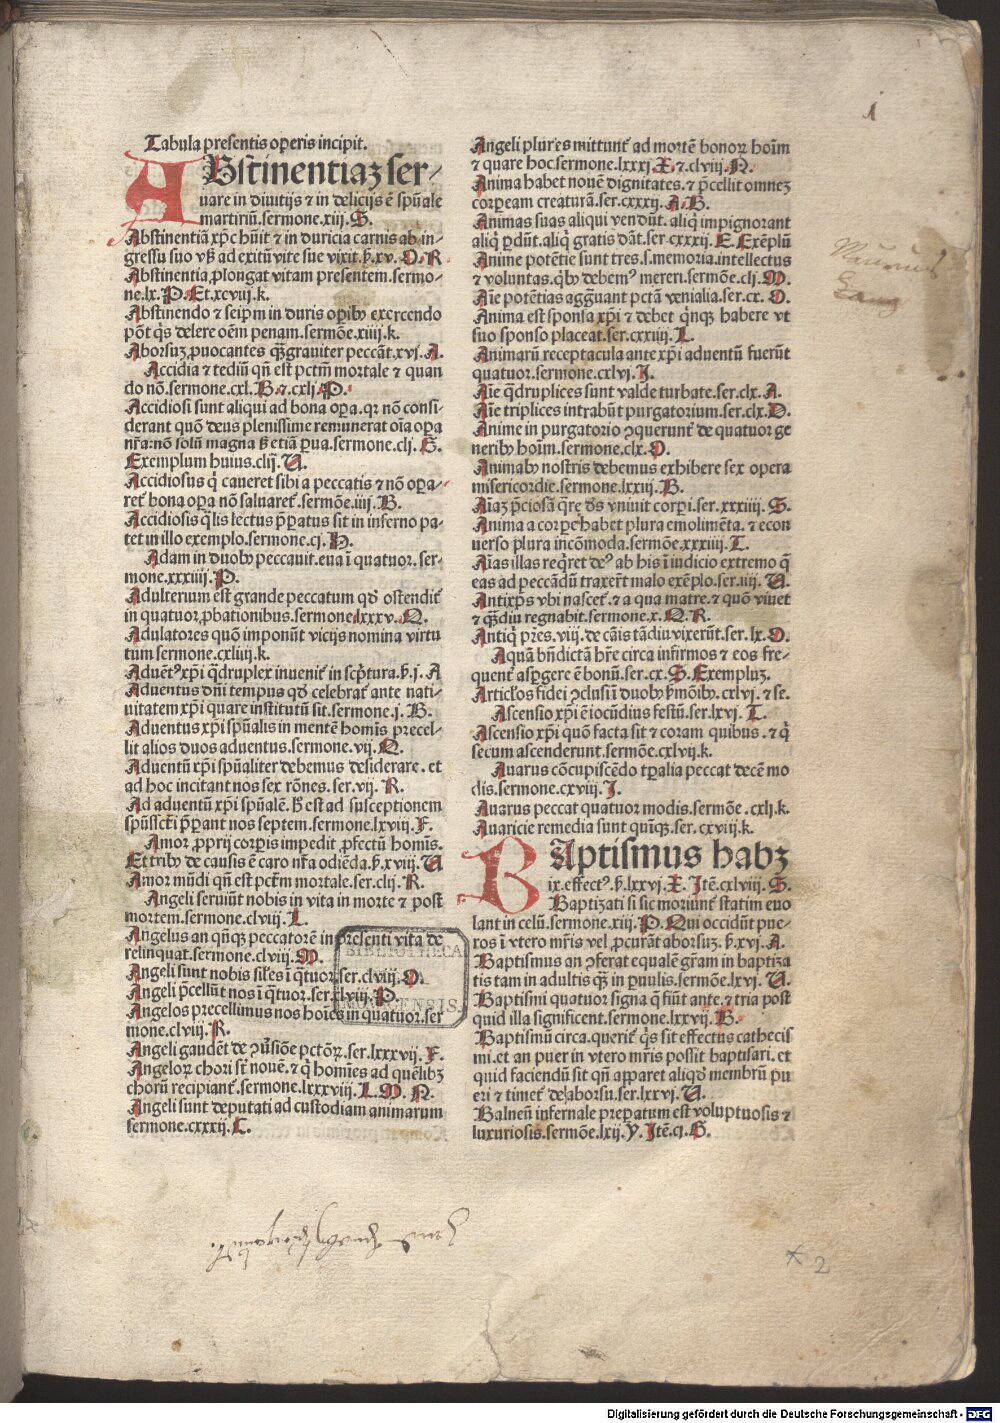 Tabula presentis operis incipit.
ABstinentiaz ser-
uare in diuitijs ⁊ in delicijs ē spūale
martiriū.sermone.xiij.S.
Abstinentiā xp̄c hūit ⁊ in duricia carnis ab in-
gressu suo vsq̄ ad exitū vite sue vixit.ẜ.xv.O.R
Abstinentia ꝓlongat vitam presentem.sermo-
ne.lx.P.Et.xcviij.k.
Abstinendo ⁊ seip̄m in duris oꝑibꝫ exercendo
pōt q̄s delere oēm penam.sermōe.xiiij.k.
Aborsuꝫ ꝓuocantes qꝫ grauiter peccāt.xvj.A.
Accidia ⁊ tediū qn̄ est pctm̄ mortale ⁊ quan
do nō.sermone.cxl.B.⁊.cxlj.P.
Accidiosi sunt aliqui ad bona oꝑa.qꝛ nō consi-
derant quō deus plenissime remunerat oīa oꝑa
nr̄a:nō solū magna sꝫ etiā ꝑua.sermone.clj.G.
Exemplum huius.clij.A.
Accidiosus q̄ caueret sibi a peccatis ⁊ nō oꝑa-
ret̄ bona oꝑa nō saluaret̄.sermōe.iiij.B.
Accidiosis q̄lis lectus p̄ꝑatus sit in inferno pa-
tet in illo exemplo.sermone.cj.H.
Adam in duobꝫ peccauit.eua ī quatuor.ser-
mone.xxxiiij.P.
Adulterium est grande peccatum qd̄ ostendit̄
in quatuor ꝓbationibus.sermone.lxxxv.Q.
Adulatores quō imponūt vicijs nomina virtu
tum sermone.cxliiij.k.
Aduētꝰ xp̄i q̄druplex inuenit̄ in scp̄tura.ẜ.j.A
Aduentus dn̄i tempus qd̄ celebrat̄ ante nati-
uitatem xp̄i quare institutū sit.sermone.j.B.
Aduentus xp̄i spūalis in mentē homīs precel-
lit alios duos aduentus.sermone.vij.Q.
Aduentū xp̄i spūaliter debemus desiderare.et
ad hoc incitant nos sex rōnes.ser.vij.R.
Ad aduentū xp̄i spūalē.hꝫ est ad susceptionem
spūssctī p̄ꝑant nos septem.sermone.lxviij.F.
Amor ꝓprij corꝑis impedit ꝓfectū homīs.
Et tribꝫ de causis ē caro nr̄a odiēda.ẜ.xviij.A
Amor mūdi qn̄ est pctm̄ mortale.ser.clij.R.
Angeli seruiūt nobis in vita in morte ⁊ post
mortem.sermone.clviij.L.
Angelus an qn̄qꝫ peccatorē in presenti vita de
relinquat.sermone.clviij.M.
Angeli sunt nobis siłes ī q̄tuor.ser.clviij.O.
Angeli p̄cellūt nos ī q̄tuor.ser.clviij.P.
Angelos precellimus nos hoīes in quatuor.ser
mone.clviij.R.
Angeli gaudēt de ꝯuersiōe pctōꝝ.ser.lxxxvij.F.
Angeloꝝ chori st̄ nouē.⁊ q̄ homīes ad quēlibꝫ
chorū recipiant̄.sermone.lxxxviij.L.M.N.
Angeli sunt deputati ad custodiam animarum
sermone.cxxxij.C.
Angeli plures mittunt̄ ad mortē bonoꝝ hoīm
⁊ quare hoc.sermone.lxxxj.X.⁊.clviij.N.
Anima habet nouē dignitates.⁊ p̄cellit omneꝫ
corꝑeam creaturā.ser.cxxxij.A.B.
Animas suas aliqui vendūt.aliq̄ impignorant
aliq̄ ꝑdūt.aliq̄ gratis dāt.ser.cxxxij.E.Exēplū
Anime potētie sunt tres.s.memoria.intellectus
⁊ voluntas.qͥbꝫ debemꝰ mereri.sermōe.clj.M.
Aīe potētias aggͣuant pctā venialia.ser.cx.O.
Anima est sponsa xp̄i ⁊ debet qͥnqꝫ habere vt
suo sponso placeat.ser.cxxiij.L.
Animarū receptacula ante xp̄i aduentū fuerūt
quatuor.sermone.cxlvj.J.
Aīe q̄druplices sunt valde turbate.ser.clx.A.
Aīe triplices intrabūt purgatorium.ser.clx.D.
Anime in purgatorio ꝯquerunt̄ de quatuor ge
neribꝫ hoīm.sermone.clx.O.
Animabꝫ nostris debemus exhibere sex opera
misericordie.sermone.lxxij.B.
Aīaꝫ p̄ciosā q̄re dꝰs vniuit corꝑi.ser.xxxiiij.S.
Anima a corꝑe habet plura emolimēta.⁊ econ
uerso plura incōmoda.sermōe.xxxiiij.T.
Aīas illas req̄ret deꝰ ab his ī iudicio extremo q̄
eas ad peccādū traxert̄ malo exēplo.ser.iiij.A.
Antixp̄s vbi nascet̄.⁊ a qua matre.⁊ quō viuet
⁊ qꝫdiu regnabit.sermone.x.Q.R.
Antiq̄ pr̄es.viij.de cāis tādiu vixerūt.ser.lx.O.
Aquā bn̄dictā hr̄e circa infirmos ⁊ eos fre-
quent̄ asꝑgere ē bonū.ser.cx.S.Exempluꝫ.
Articłos fidei ꝯclusū ī duobꝫ ẜmōibꝫ.cxlvj.⁊ se.
Ascensio xp̄i ē iocūdius festū.ser.lxvj.T.
Ascensio xp̄i quō facta sit ⁊ coram quibus.⁊ q̄
secum ascenderunt.sermōe.cxlvij.k.
Auarus cōcupiscēdo tꝑalia peccat decē mo
dis.sermone.cxviij.J.
Auarus peccat quatuor modis.sermōe.cxlj.k.
Auaricie remedia sunt quīqꝫ.ser.cxviij.k.
BAptismus habꝫ
ix.effectꝰ.ẜ.lxxvj.X.Jtē.cxlviij.S.
Baptizati si sic moriunt̄ statim euo
lant in celū.sermone.xiij.P.Qui occidūt pue-
ros ī vtero mr̄is vel ꝓcurāt aborsuꝫ.ẜ.xvj.A.
Baptismus an ꝯferat equalē gr̄am in baptiza
tis tam in adultis qꝫ in ꝑuulis.sermōe.lxvj.A.
Baptismi quatuor signa q̄ fiūt ante.⁊ tria post
quid illa significent.sermone.lxxvij.B.
Baptismū circa.querit̄ q̄s sit effectus cathecis
mi.et an puer in vtero mr̄is possit baptisari.et
quid faciendū sit qn̄ apparet aliqd̄ membrū pu
eri ⁊ timet̄ de aborsu.ser.lxxvj.A.
Balneū infernale preꝑatum est voluptuosis ⁊
luxuriosis.sermōe.lxij.V.Jtē.cj.G.
BIBLIOTHECA
MONACENSIS.
1
2
Digitalisierung gefördert durch die Deutsche Forschungsgemeinschaft - DFG